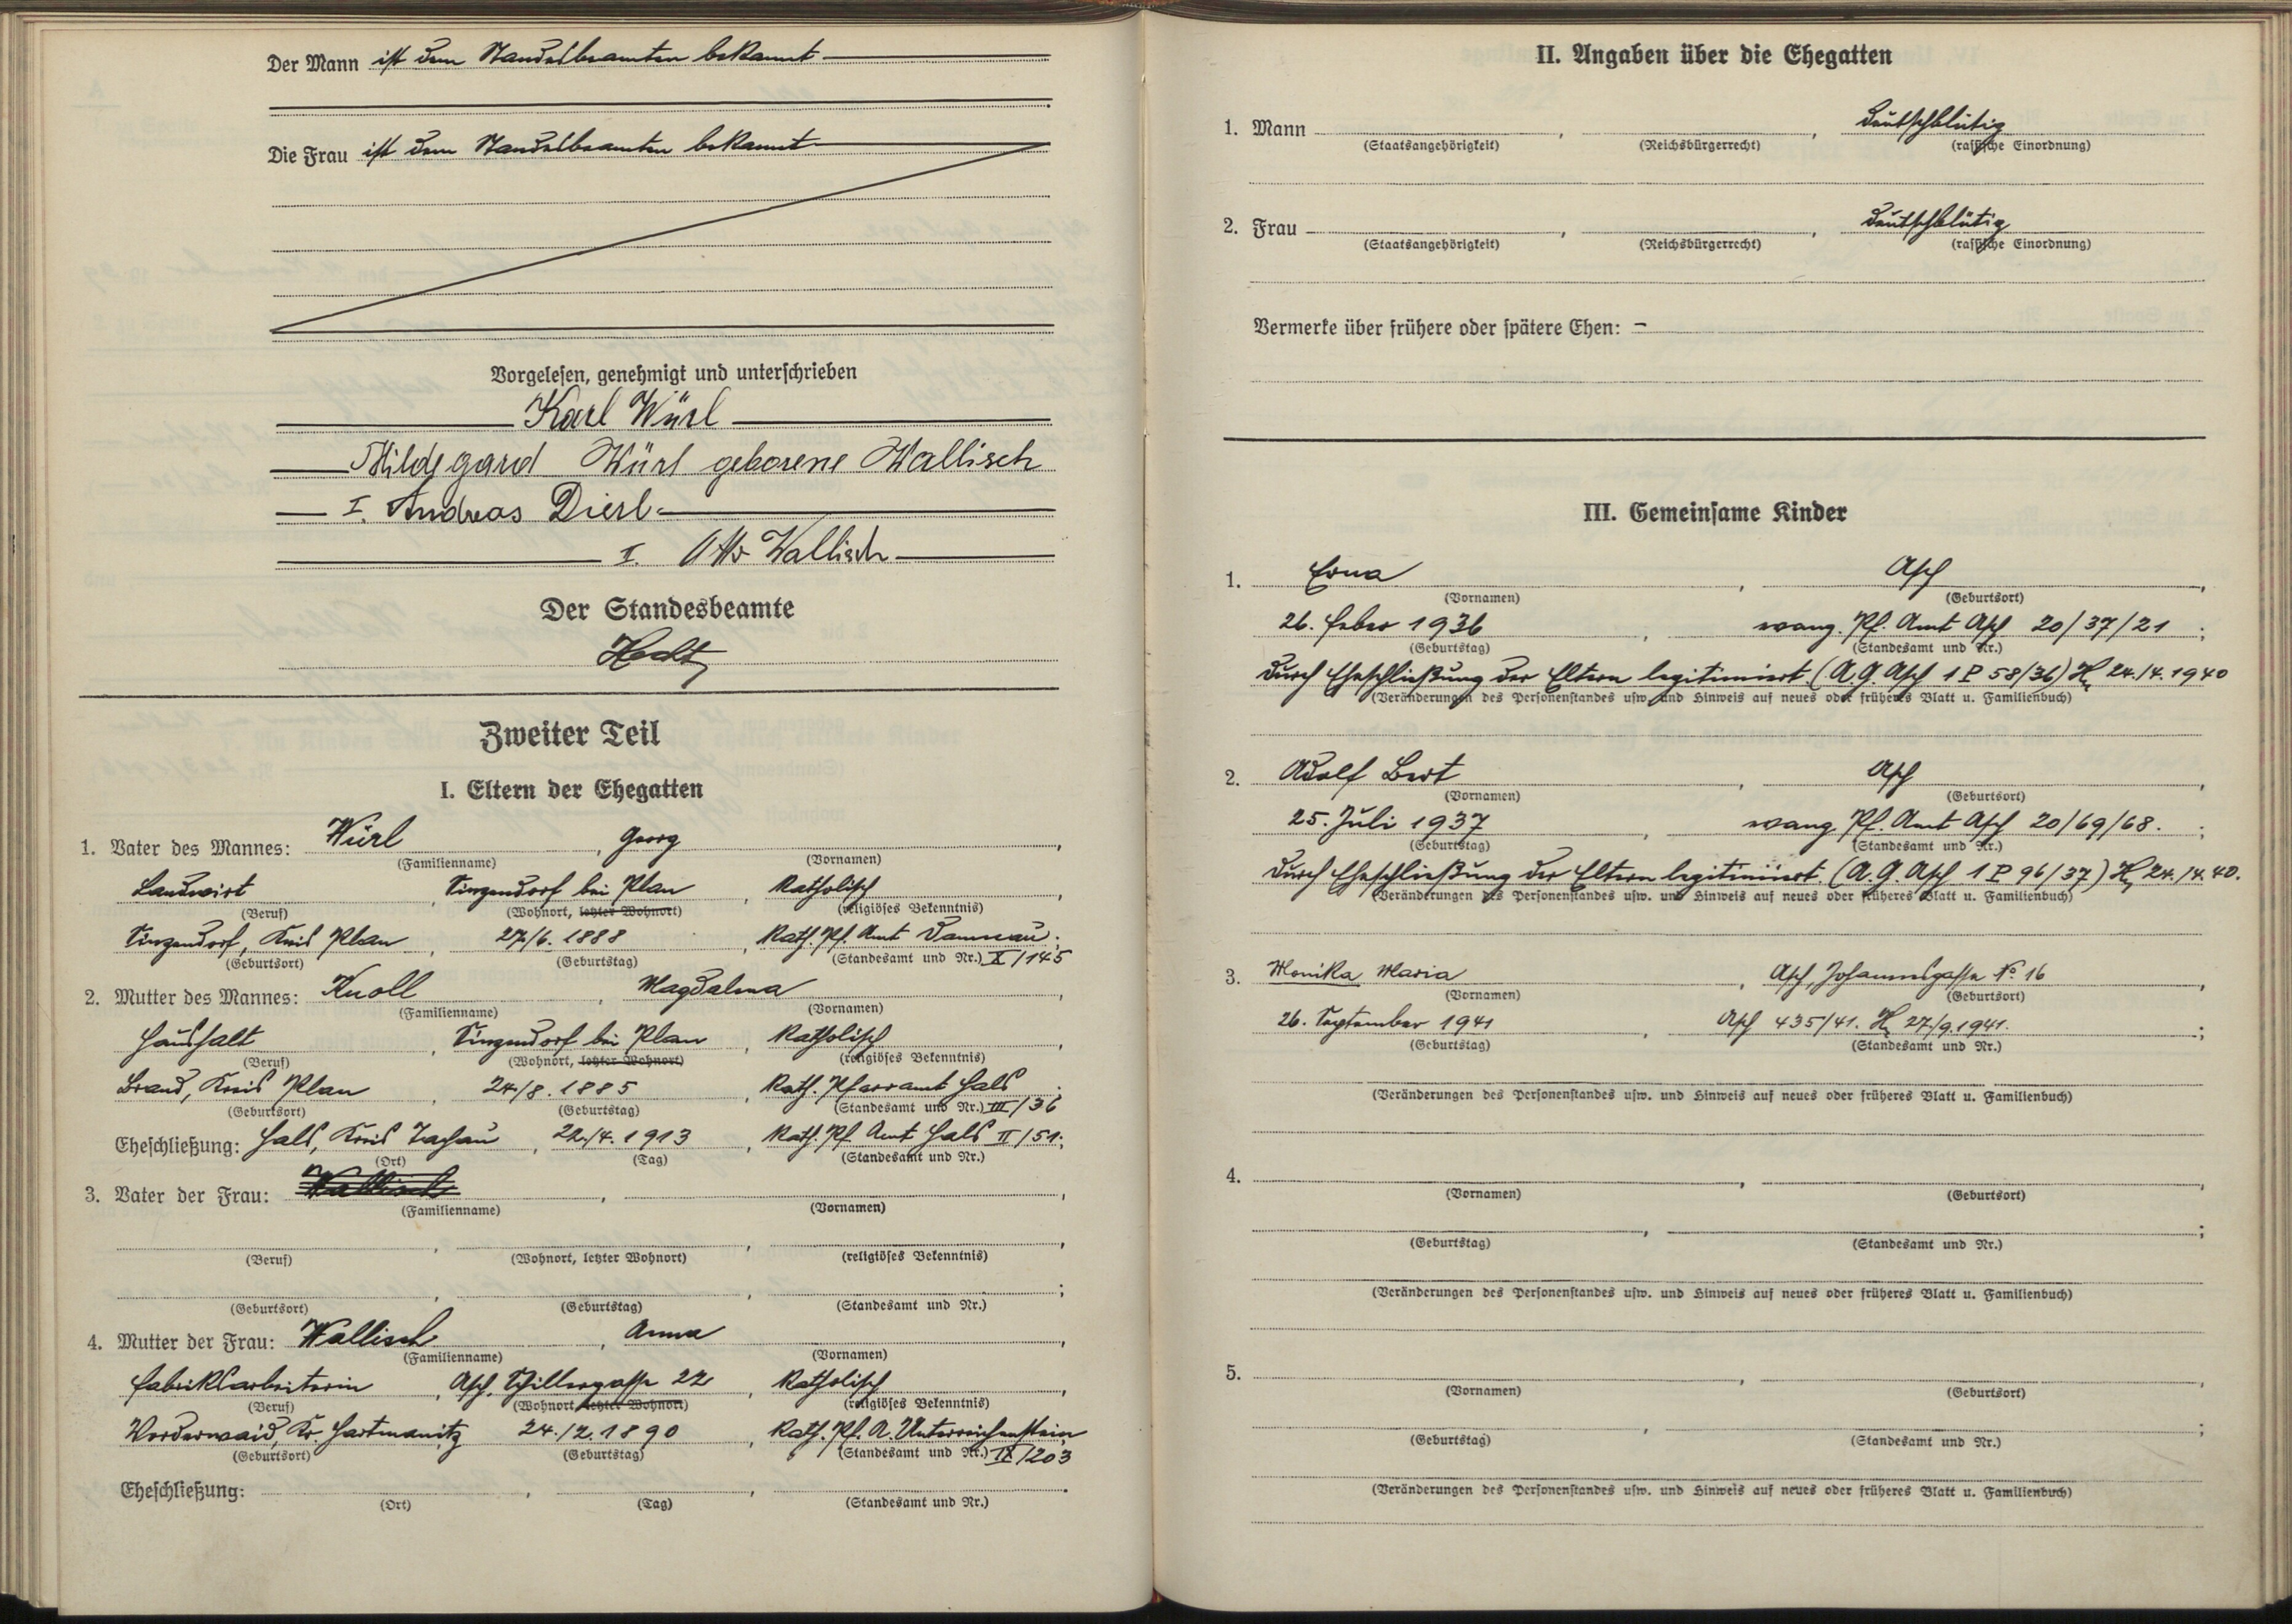 Der Mann ist dem Standesbeamten bekannt
Die Frau ist dem Standesbeamten bekannt
Vorgelesen, genehmigt und unterschrieben
Karl Würl
Hildegard Würl geborene Wallisch
I. Andreas Dierl
II. Otto Wallisch
Der Standesbeamte
Hecht
Zweiter Teil
I. Eltern der Ehegatten
1. Vater des Mannes: Würl, Georg
(Familienname) (Vornamen)
Landwirt, Sinzendorf bei Plan, Katholisch,
(Beruf) (Wohnort, letzter Wohnort) (religiöses Bekenntnis)
Sinzendorf, Kreis Plan, 27/6. 1888, Kath. Pf. Amt Damnau;
(Geburtsort) (Geburtstag) (Standesamt und Nr.) X/145
2. Mutter des Mannes: Knoll, Magdalena,
(Familienname) (Vornamen)
Haushalt, Sinzendorf bei Plan, Katholisch,
(Beruf) (Wohnort, letzter Wohnort) (religiöses Bekenntnis)
Brand, Kreis Plan, 24/8. 1885, Kath. Pfarramt Hals;
(Geburtsort) (Geburtstag) (Standesamt und Nr.) III/36
Eheschließung: Hals, Kreis Tachau, 22./4. 1913, Kath. Pf. Amt Hals II/51.
(Ort) (Tag) (Standesamt und Nr.)
3. Vater der Frau: Wallisch, ,
(Familienname) (Vornamen)
(Beruf) (Wohnort, letzter Wohnort) (religiöses Bekenntnis)
(Geburtsort) (Geburtstag) (Standesamt und Nr.)
4. Mutter der Frau: Wallisch, Anna,
(Familienname) (Vornamen)
Fabriksarbeiterin, Asch, Schillergasse 22, Katholisch,
(Beruf) (Wohnort, letzter Wohnort) (religiöses Bekenntnis)
Vorderwaid, Kr. Hartmanitz 24./2. 1890, Kath. Pf. A. Unterreichenstein
(Geburtsort) (Geburtstag) (Standesamt und Nr.) IX/203
Eheschließung:
(Ort) (Tag) (Standesamt und Nr.)
II. Angaben über die Ehegatten
1. Mann , , deutschblütig
(Staatsangehörigkeit) (Reichsbürgerrecht) (rassische Einordnung)
2. Frau , , deutschblütig
(Staatsangehörigkeit) (Reichsbürgerrecht) (rassische Einordnung)
Vermerke über frühere oder spätere Ehen: –
III. Gemeinsame Kinder
1. Erna, Asch,
(Vornamen) (Geburtsort)
26. Feber 1936, evang. Pf. Amt Asch 20/37/21;
(Geburtstag) (Standesamt und Nr.)
durch Eheschließung der Eltern legitimiert. (A.G. Asch 1 P 58/36) H, 24./4. 1940
(Veränderungen des Personenstandes usw. und Hinweis auf neues oder früheres Blatt u. Familienbuch)
2. Adolf Bert, Asch,
(Vornamen) (Geburtsort)
25. Juli 1937, evang Pf. Amt Asch 20/69/68.;
(Geburtstag) (Standesamt und Nr.)
durch Eheschließung der Eltern legitimiert. (A.G. Asch 1 P 96/37) H, 24./4. 40.
(Veränderungen des Personenstandes usw. und Hinweis auf neues oder früheres Blatt u. Familienbuch)
3. Monika Maria, Asch, Johannesgasse No. 16,
(Vornamen) (Geburtsort)
26. September 1941, Asch 435/41. H, 27./9. 1941.;
(Geburtstag) (Standesamt und Nr.)
(Veränderungen des Personenstandes usw. und Hinweis auf neues oder früheres Blatt u. Familienbuch)
4.
(Vornamen) (Geburtsort)
(Geburtstag) (Standesamt und Nr.)
(Veränderungen des Personenstandes usw. und Hinweis auf neues oder früheres Blatt u. Familienbuch)
5.
(Vornamen) (Geburtsort)
(Geburtstag) (Standesamt und Nr.)
(Veränderungen des Personenstandes usw. und Hinweis auf neues oder früheres Blatt u. Familienbuch)